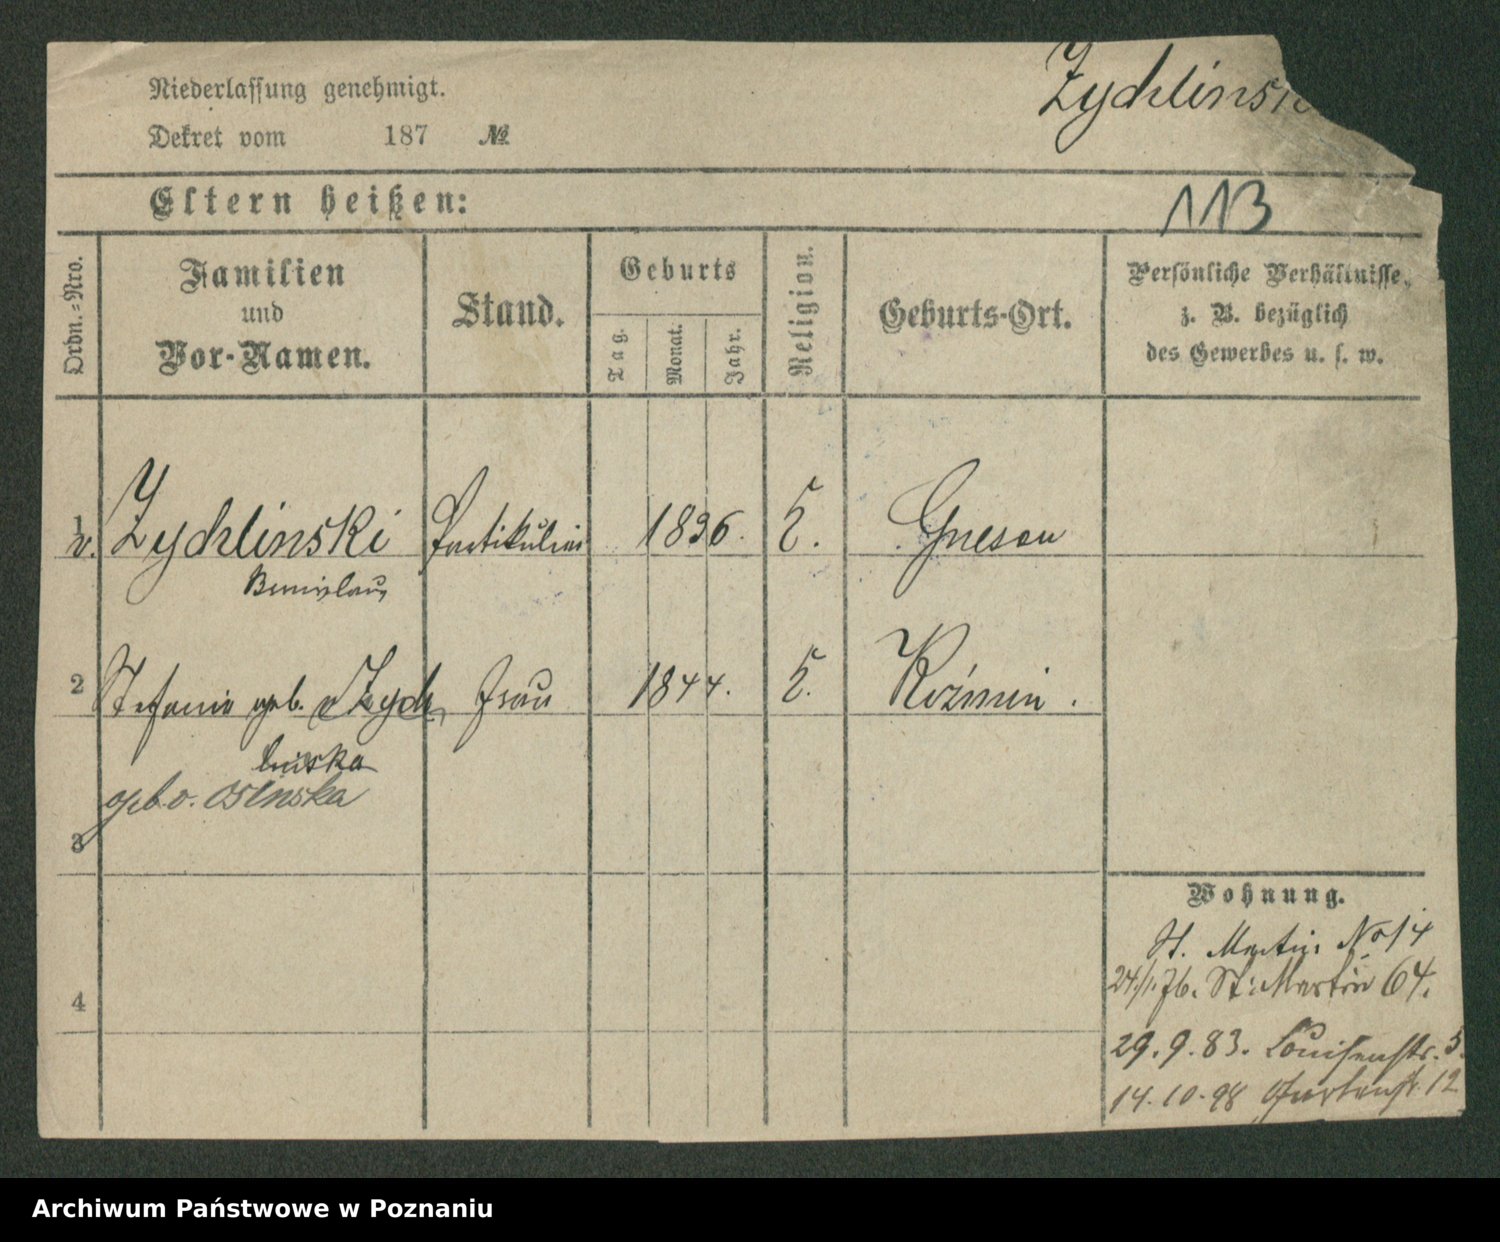 Zychlinski
Niederlassung genehmigt.
Dekret vom 187 №
Eltern heißen:
113
Ordn.-Nro.
Familien
und
Vor-Namen.
Stand.
Geburts
Tag.
Monat.
Jahr.
Religion.
Geburts-Ort.
Persönliche Verhältnisse,
z. B. bezüglich
des Gewerbes u. s. w.
1 v. Zychlinski Partikulier 1836. Gnesen
2 Stefanie geb. v Zych Frau 1844. Kozmin.
linska
geb. v. Osinska
3
4
Wohnung.
St. Martin No 14
24./1. 76. St. Martin 64.
29. 9. 83. Louisenstr. 5.
14. 10. 98 Gartenstr. 12
Archiwum Państwowe w Poznaniu